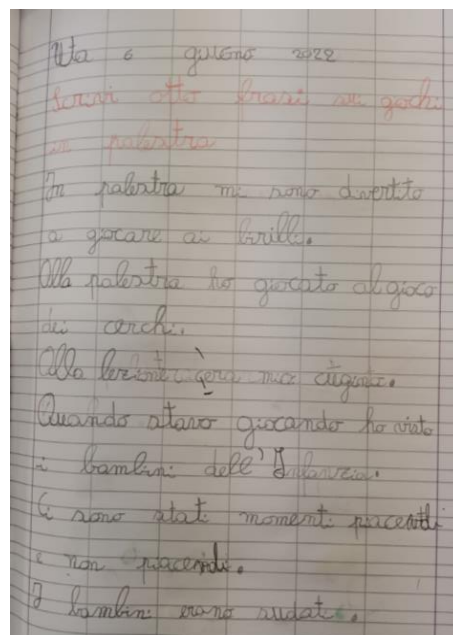 Uta 6 giugno 2022
Scrivi otto frasi sui giochi
in palestra
In palestra mi sono divertito
a giocare ai birilli.
Alla palestra ho giocato al gioco
dei cerchi.
Alla c'era mia cugina.
Quando stavo giocando ho visto
i bambini dell'Infanzia.
Ci sono stati momenti piacevoli
e non piacevoli.
I bambini erano sudati.